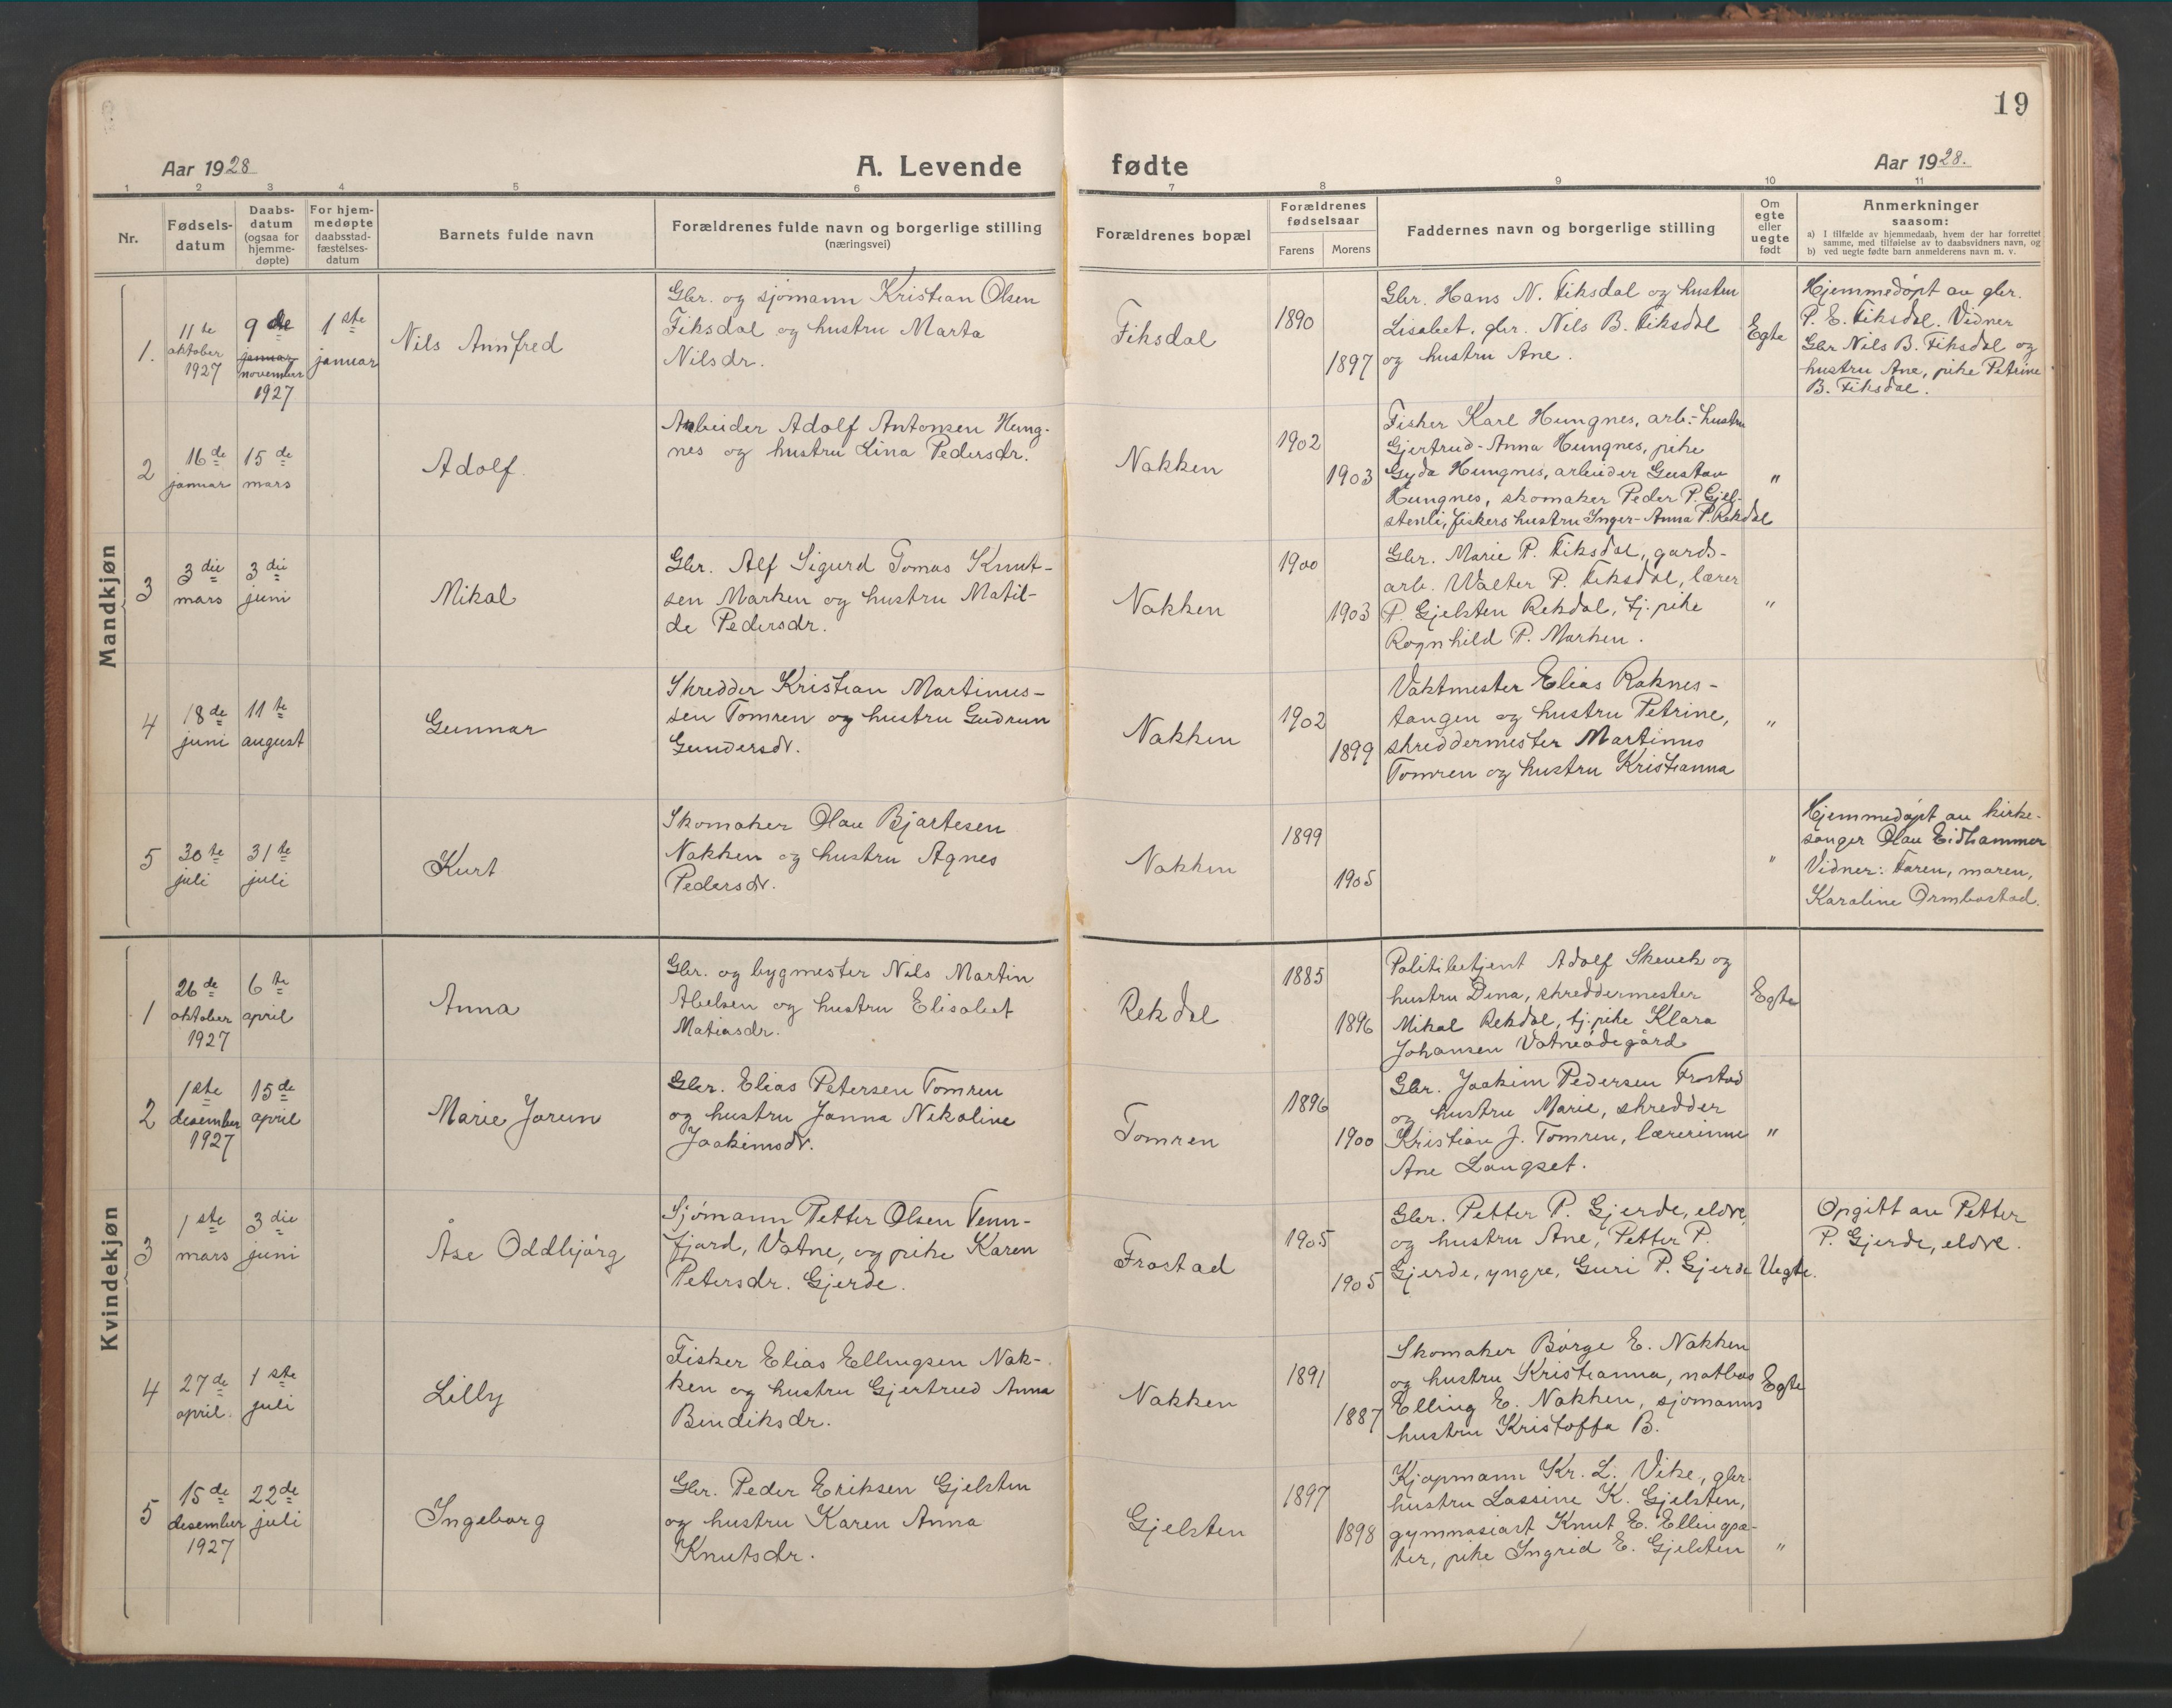 19
Aar 1928
A. Levende fødte
Aar 1928.
1 2 3 4 5 6 7 8 9 10 11
Nr.
Fødsels-
datum
Daabs-
datum
(ogsaa for
hjemme-
døpte)
For hjem-
medøpte
daabsstad-
fæstelses-
datum
Barnets fulde navn
Forældrenes fulde navn og borgerlige stilling
(næringsvei)
Forældrenes bopæl
Forældrenes
fødselsaar
Farens Morens
Faddernes navn og borgerlige stilling
Om
egte
eller
uegte
født
Anmerkninger
saasom:
a) I tilfælde av hjemmedaab, hvem der har forrettet
samme, med tilføielse av to daabsvidners navn, og
b) ved uegte fødte barn anmelderens navn m. v.
Mandkjøn
1.
11te
oktober
1927
9de
januar
november
1927
1ste
januar
Nils Annfred
Gbr. og sjømann Kristian Olsen
Fiksdal og hustru Marta
Nilsdr.
Fiksdal
1890
1897
Gbr. Hans N. Fiksdal og hustru
Lisabet, gbr. Nils B. Fiksdal
og hustru Ane.
Egte
Hjemmedøpt av gbr.
P. E. Fiksdal. Vidner
Gbr Nils B. Fiksdal og
hustru Ane, pike Petrine
B. Fiksdal.
2
16de
januar
15de
mars
Adolf.
Arbeider Adolf Antonsen Hung-
nes og hustru Lina Pedersdr.
Nakken
1902
1903
Fisker Karl Hungnes, arb.-hustru
Gjertrud-Anna Hungnes, pike
Gyda Hungnes, arbeider Gustav
Hungnes, skomaker Peder P. Gjel-
stenli, fiskers hustru Inger-Anna P. Rekdal
"
3
3die
mars
3die
juni
Mikal
Gbr. Alf Sigurd Tomas Knut-
sen Marken og hustru Matil-
de Pedersdr.
Nakken
1900
1903
Gbr. Marie P. Fiksdal, gards-
arb. Walter P. Fiksdal, lærer
P. Gjelsten Rekdal, tj. pike
Ragnhild P. Marken.
"
4
18de
juni
11te
august
Gunnar
Skredder Kristian Martinus-
sen Tomren og hustru Gudrun
Gundersdr.
Nakken
1902
1899
Vaktmester Elias Raknes-
tangen og hustru Petrine,
skreddermester Martinus
Tomren og hustru Kristianna
"
5
30te
juli
31te
juli
Kurt
Skomaker Olav Bjartesen
Nakken og hustru Agnes
Pedersdr.
Nakken
1899
1905
"
Hjemmedøpt av kirke-
sanger Olav Eidhammer
Vidner: Faren, moren,
Karoline Ormbostad.
Kvindekjøn
1
26de
oktober
1927
6te
april
Anna
Gbr. og bygmester Nils Martin
Abelsen og hustru Elisabet
Matiasdr.
Rekdal
1885
1896
Politibetjent Adolf Skeuch og
hustru Dina, skreddermester
Mikal Rekdal, tj. pike Klara
Johansen Vatneødegård
Egte
2
1ste
desember
1927
15de
april
Marie Jorun
Gbr. Elias Petersen Tomren
og hustru Janna Nikoline
Joakimsdr.
Tomren
1896
1900
Gbr. Joakim Pedersen Frostad
og hustru Marie, skredder
Kristian J. Tomren, lærerinne
Ane Langset.
"
3
1ste
mars
3die
juni
Åse Oddbjørg
Sjømann Petter Olsen Tenn-
fjord, Vatne, og pike Karen
Petersdr. Gjerde.
Frostad
1905
1905
Gbr. Petter P. Gjerde, eldre,
og hustru Ane, Petter P.
Gjerde, yngre, Guri P. Gjerde
Uegte.
Opgitt av Petter
P. Gjerde, eldre.
4
27de
april.
1ste
juli
Lilly
Fisker Elias Ellingsen Nak-
ken og hustru Gjertrud Anna
Bendiksdr.
Nakken
1891
1887
Skomaker Børge E. Nakken
og hustru Kristianna, notbas
Elling E. Nakken, sjømanns
hustru Kristoffa B.
Egte
5
15de
desember
1927
22de
juli
Ingeborg
Gbr. Peder Eriksen Gjelsten
og hustru Karen Anna
Knutsdr.
Gjelsten
1897
1898
Kjøpmann Kr. L. Vike, gbr.
hustru Lassine K. Gjelsten,
gymnasiast Knut E. Ellingsæ-
ter, pike Ingrid E. Gjelsten
"